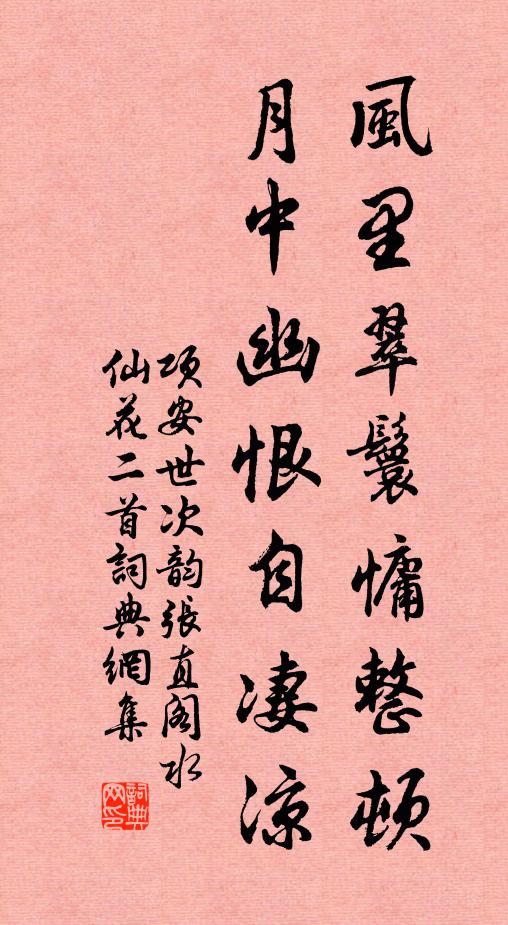 風里翠鬟慵整頓
月中幽恨自凄涼
項安世次韵張直阁水
仙花二首詞典網集
詞典网印